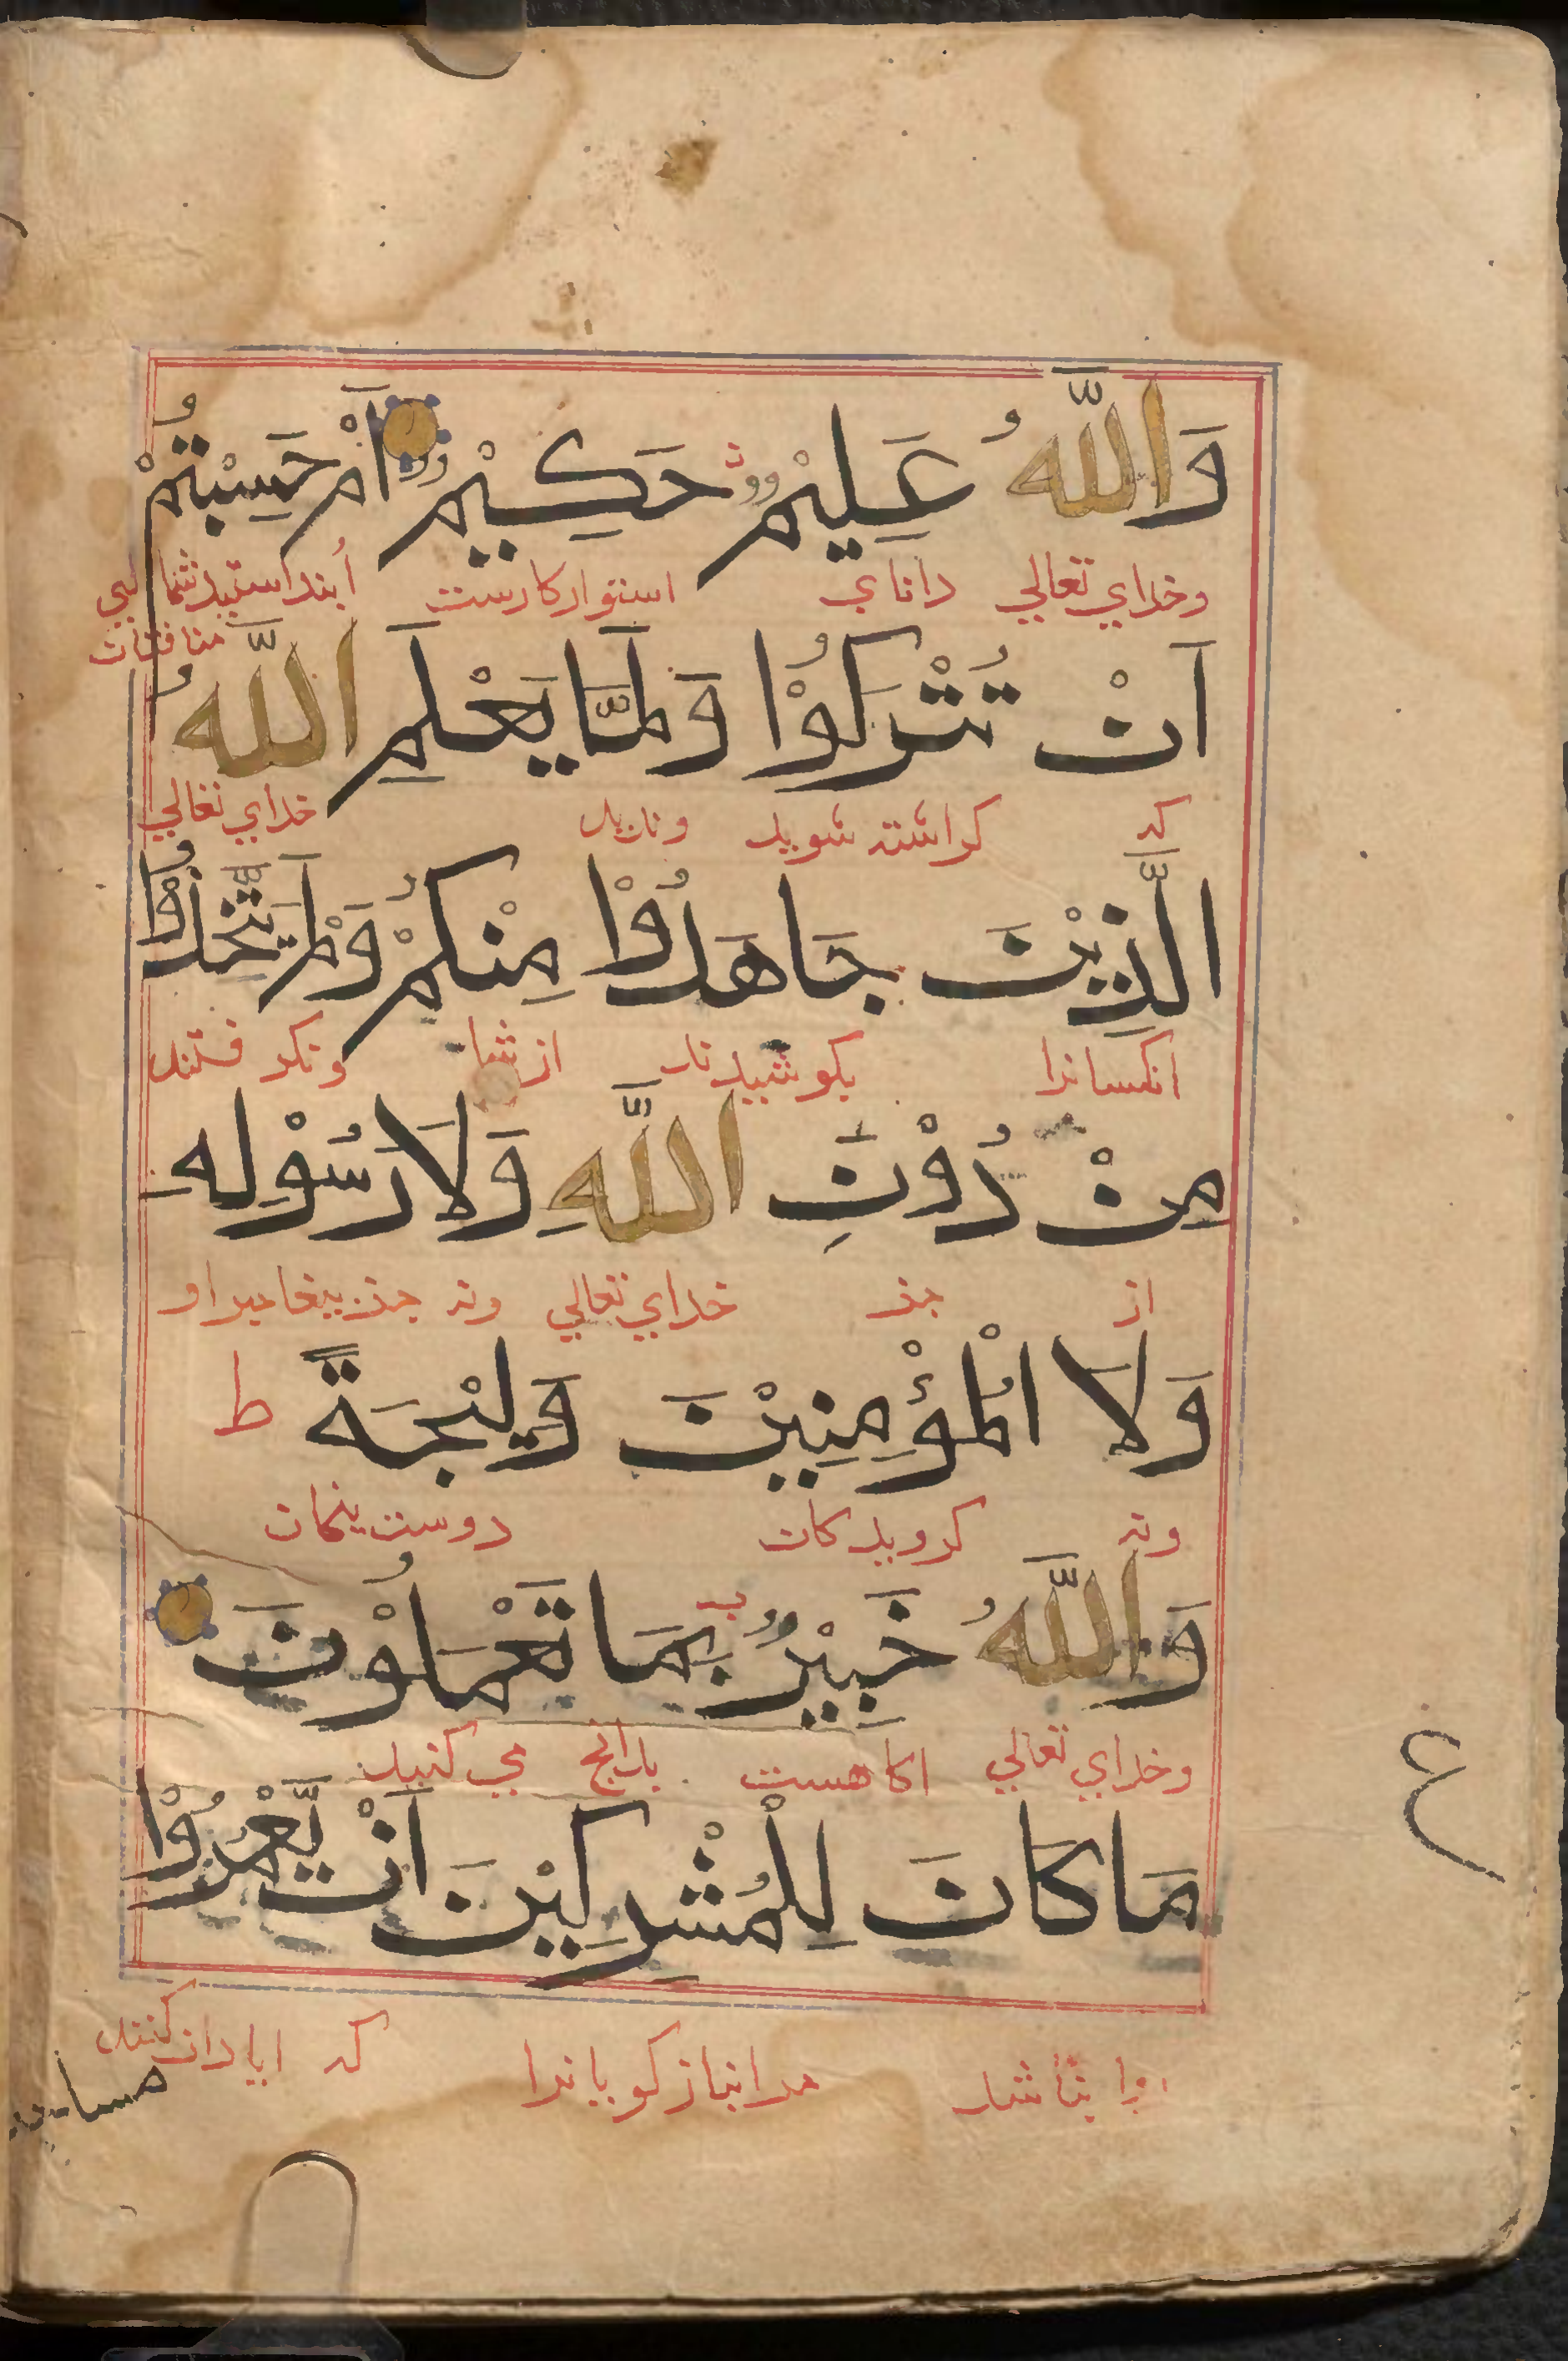 وَاللّٰهُ عَلِيْمٌ حَكِيْمٌ اَمْ حَسِبْتُمْ
وخدای تعالی دانای استوار کارست أبنداستید شما ای
منافقان
اَنْ تُتْرَكُوْا وَلَمَّا يَعْلَمِ اللّٰهُ
که کراشته شوید وندید خدای تعالی
الَّذِيْنَ جَاهَدُوْا مِنْكُمْ وَلَمْ يَتَّخِذُوْا
انکسانرا بکوشیدند از شما ونکرفتند
مِنْ دُوْنِ اللّٰهِ وَلَا رَسُوْلِهِ
از جذ خدای تعالی ونه جذ بیغامبر او
وَلَا الْمُؤْمِنِيْنَ وَلِيْجَةً ط
ونه کرویدکان دوست ینهان
وَاللّٰهُ خَبِيْرٌ بِمَا تَعْمَلُوْنَ
وخدای تعالی اکاهست بدانج می کنید
مَا كَانَ لِلْمُشْرِكِيْنَ اَنْ يَّعْمُرُوْا
ع
روا نباشد مرانباز کویانرا که ابادان کنند